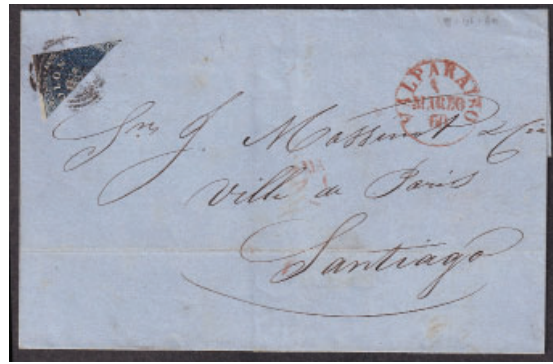 VALPARAISO
1
MARZO
60
Srs J. Massenot & Cia
Ville de Paris
Santiago